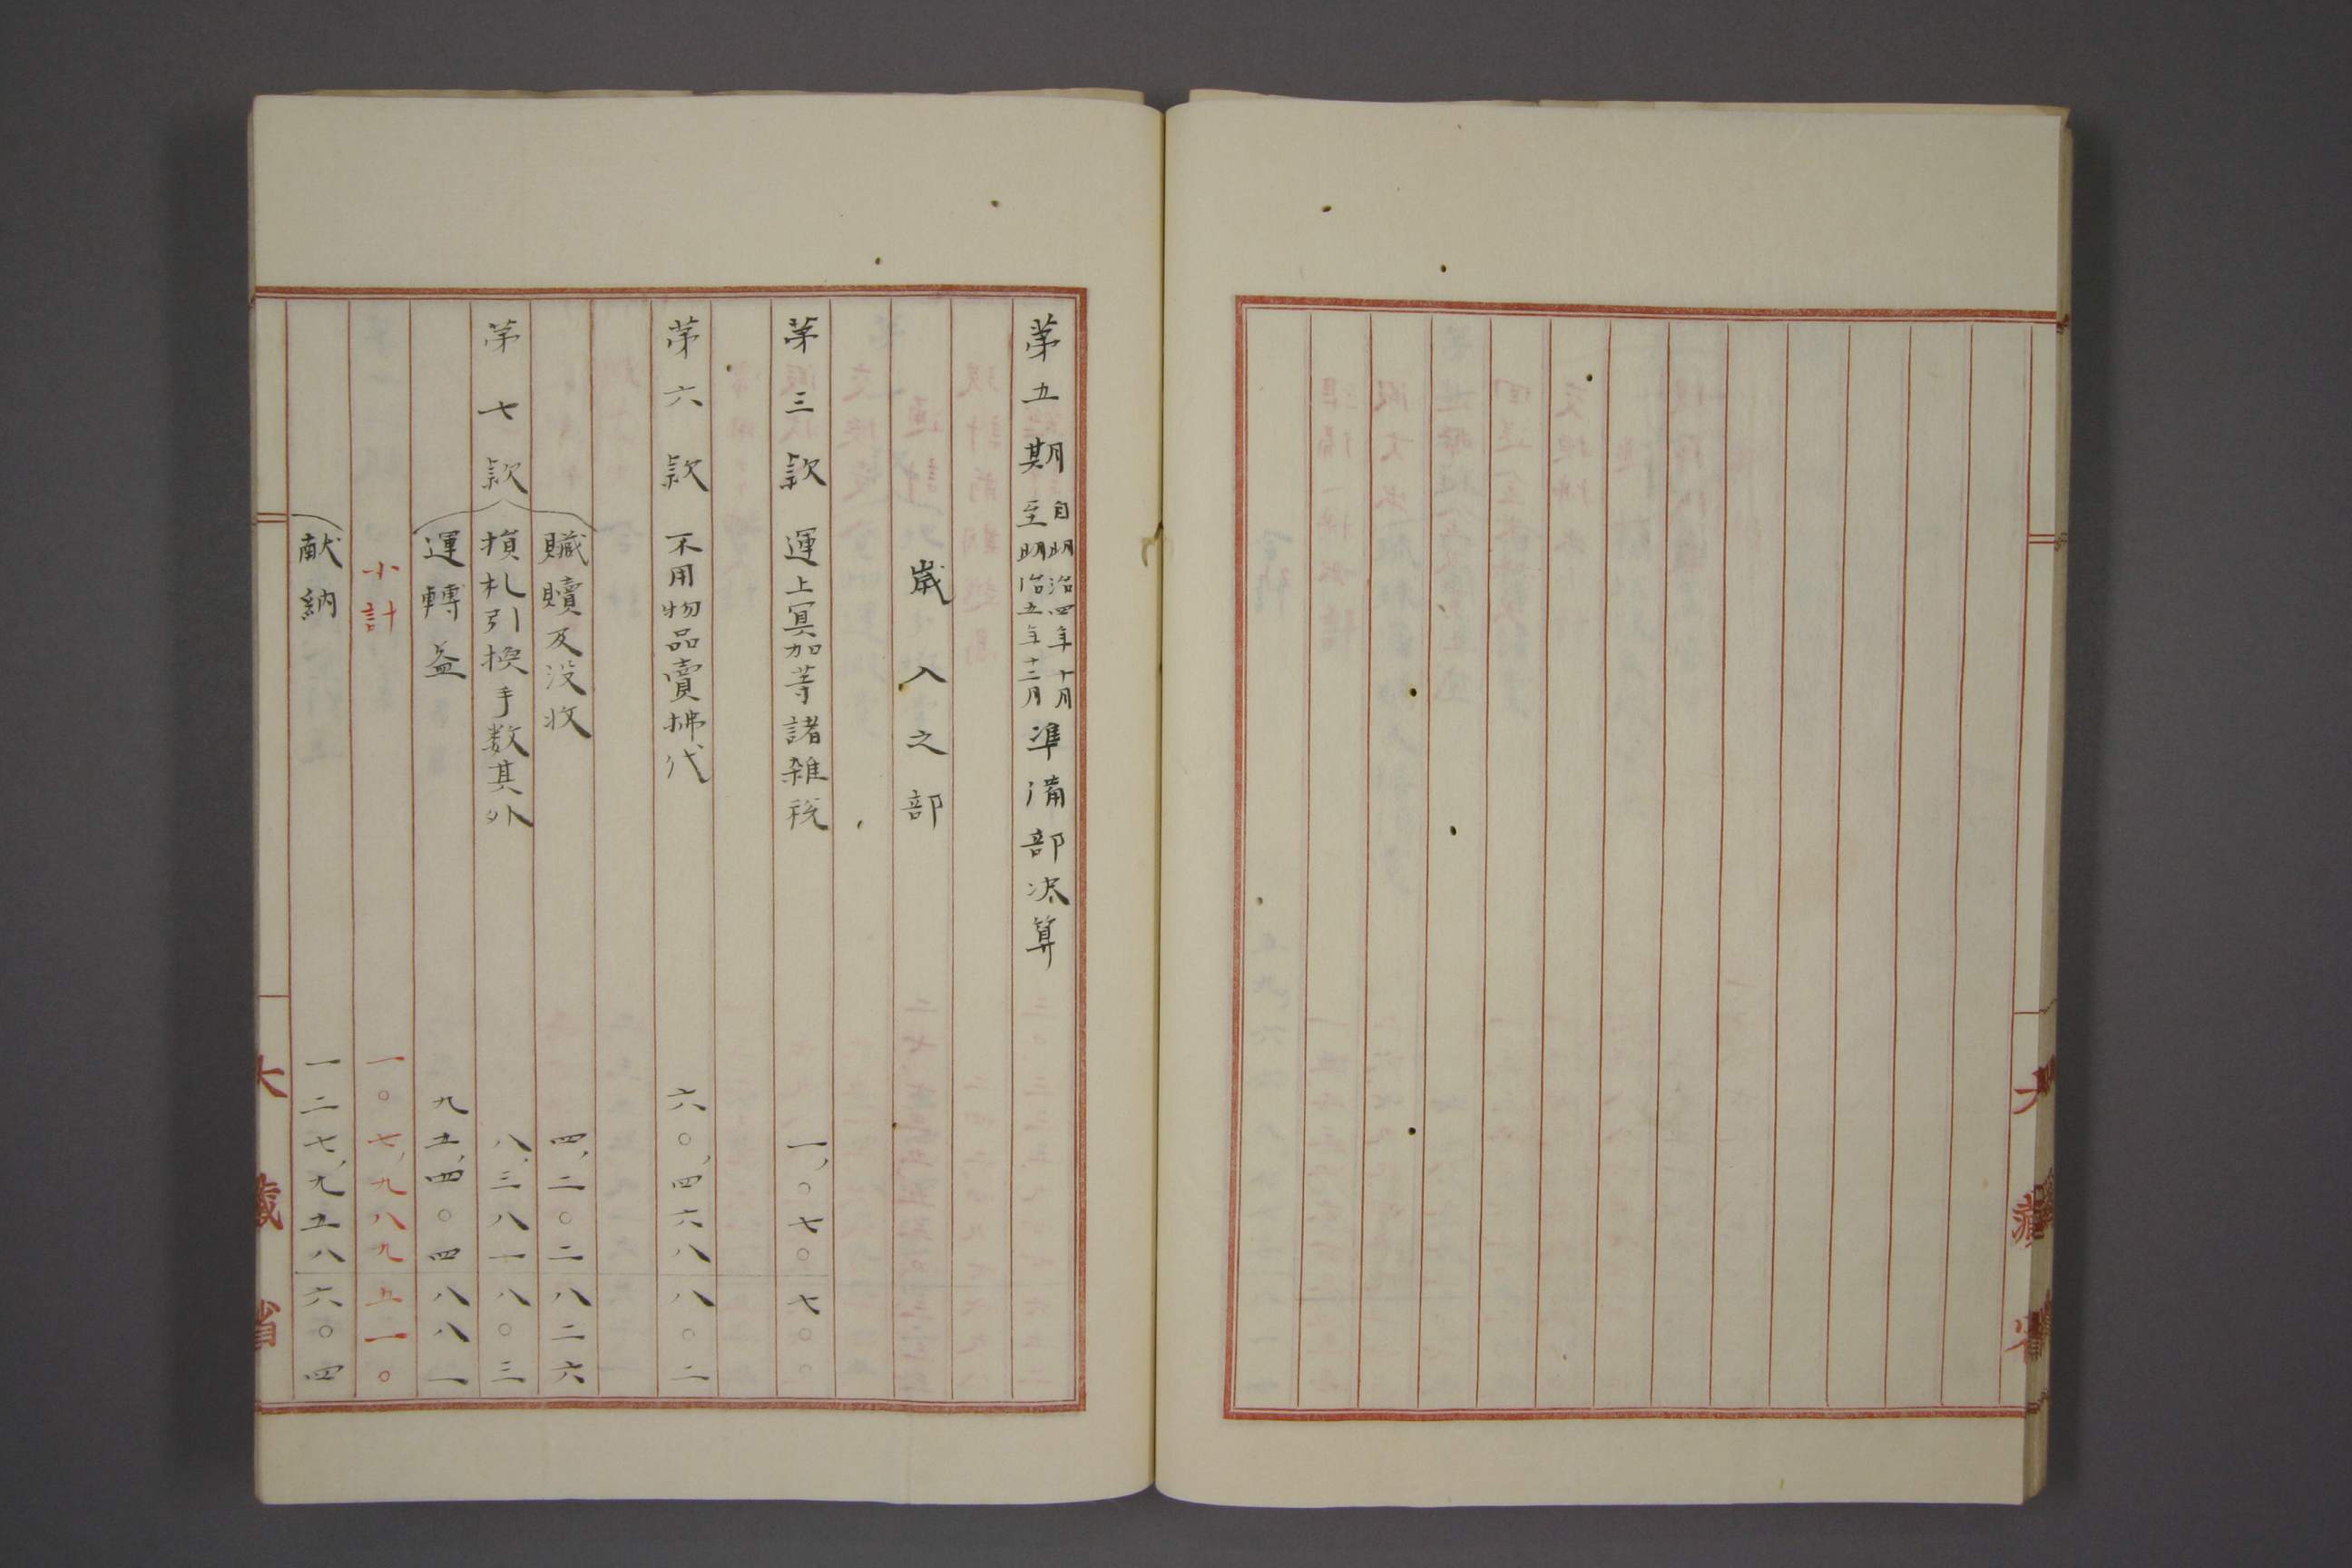 第五期自明治四年十月至明治五年十二月準備部决算
歳入之部
第三款 運上冥加等諸雑税 一,〇七〇七〇〇
第六款 不用物品賣拂代 六〇,四六八八〇二
贓贖及没收 四,二〇二八二六
第七款 損札引換手数其外 八,三八一八〇三
運轉益 九五,四〇四八八一
小計 一〇七,九八九五一〇
献納 一二七,九五八六〇四
大藏省